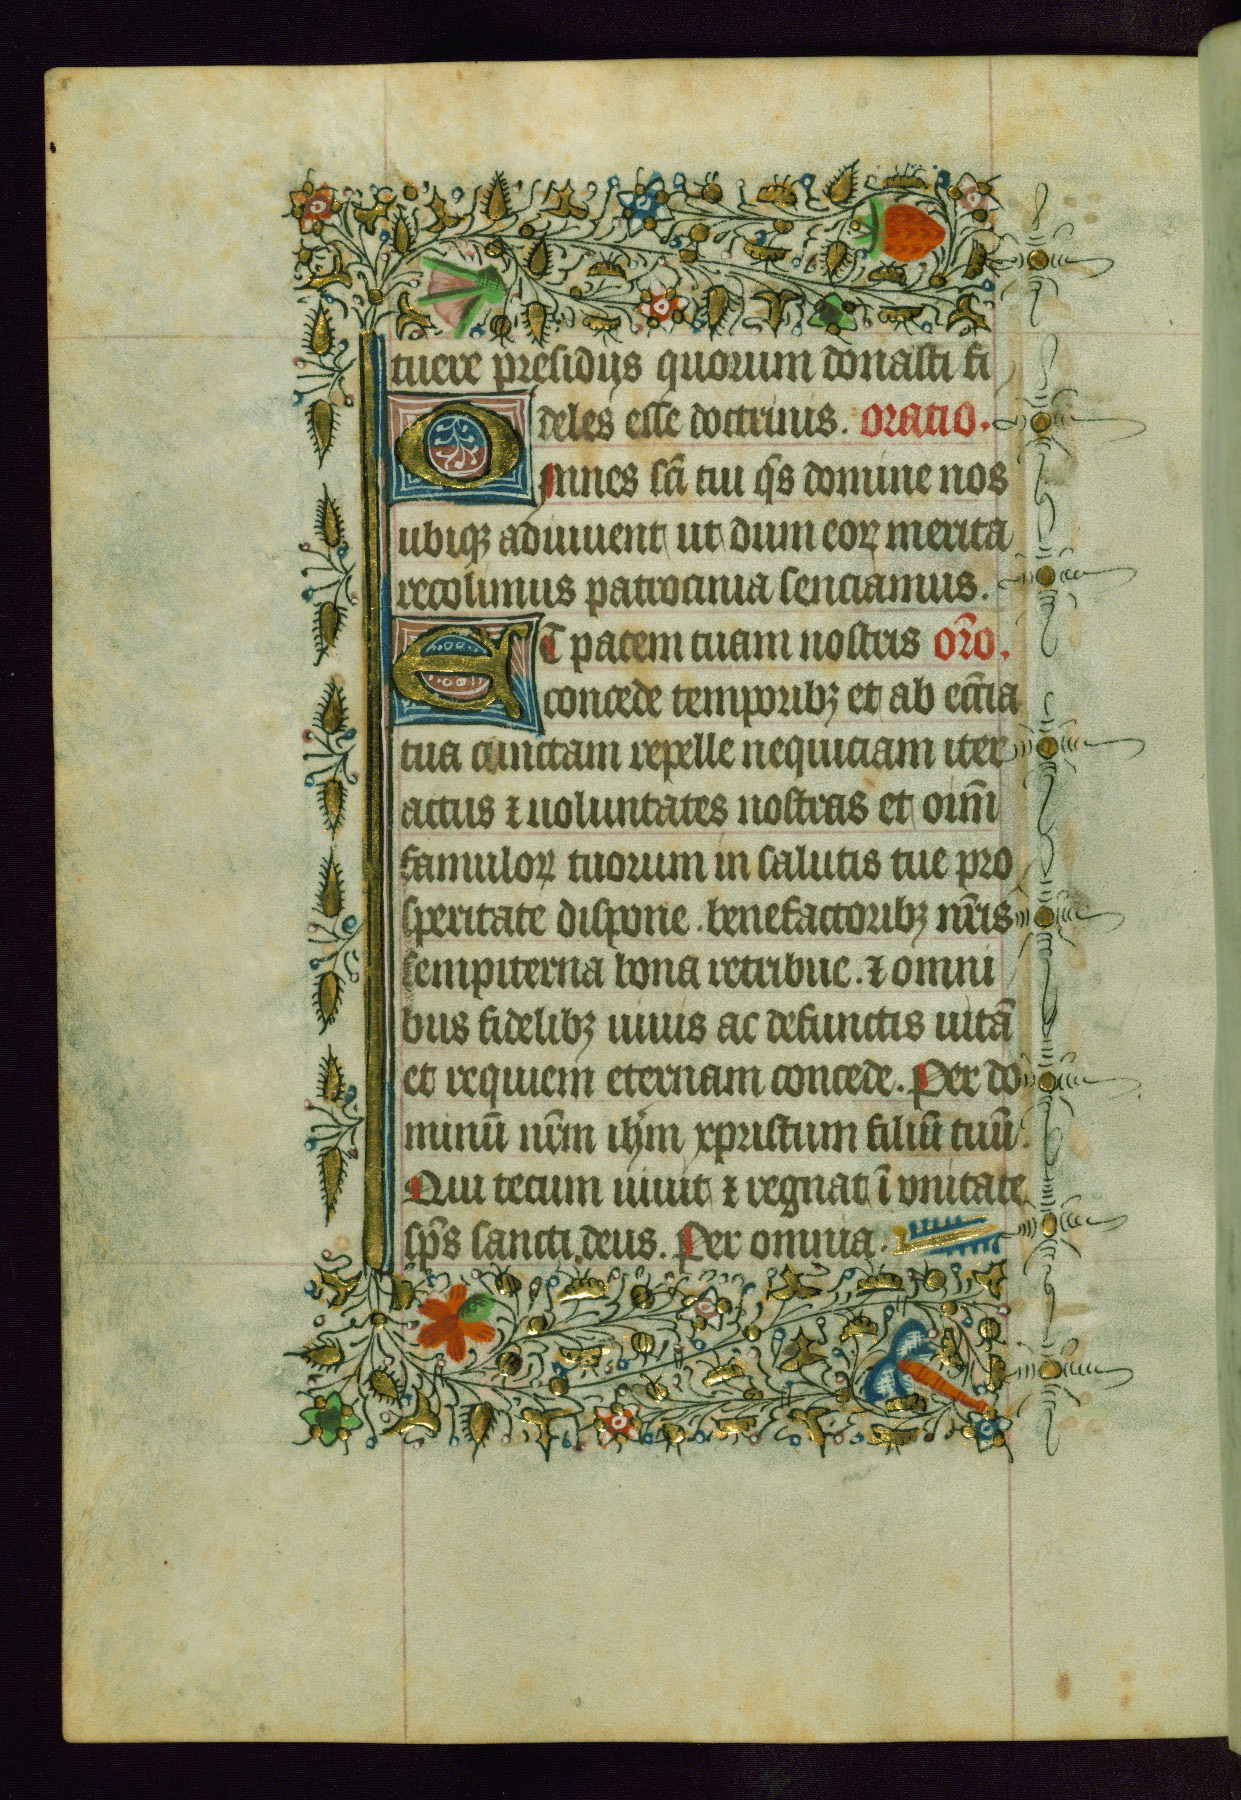 tuere presidijs quorum donasti fi
deles esse doctrinis. oratio.
Omnes scī tui q̄s domine nos
ubiqꝫ adiuuent ut dum eoꝝ merita
recolimus patrocinia senciamus.
ET pacem tuam nostris or̄o.
concede temporibꝫ et ab ecc̄ia
tua cunctam repelle nequiciam iter
actus ⁊ uoluntates nostras et oīm̄
famuloꝝ tuorum in salutis tue pro
speritate dispone. benefactoribꝫ nr̄is
sempiterna bona retribue. ⁊ omni
bus fidelibꝫ uiuis ac defunctis uitā
et requiem eternam concede. Per do
minū nr̄m ih̄m xpristum filiū tuū.
Qui tecum uiuit ⁊ regnat ī vnitate
sp̄s sancti deus. Per omnia.